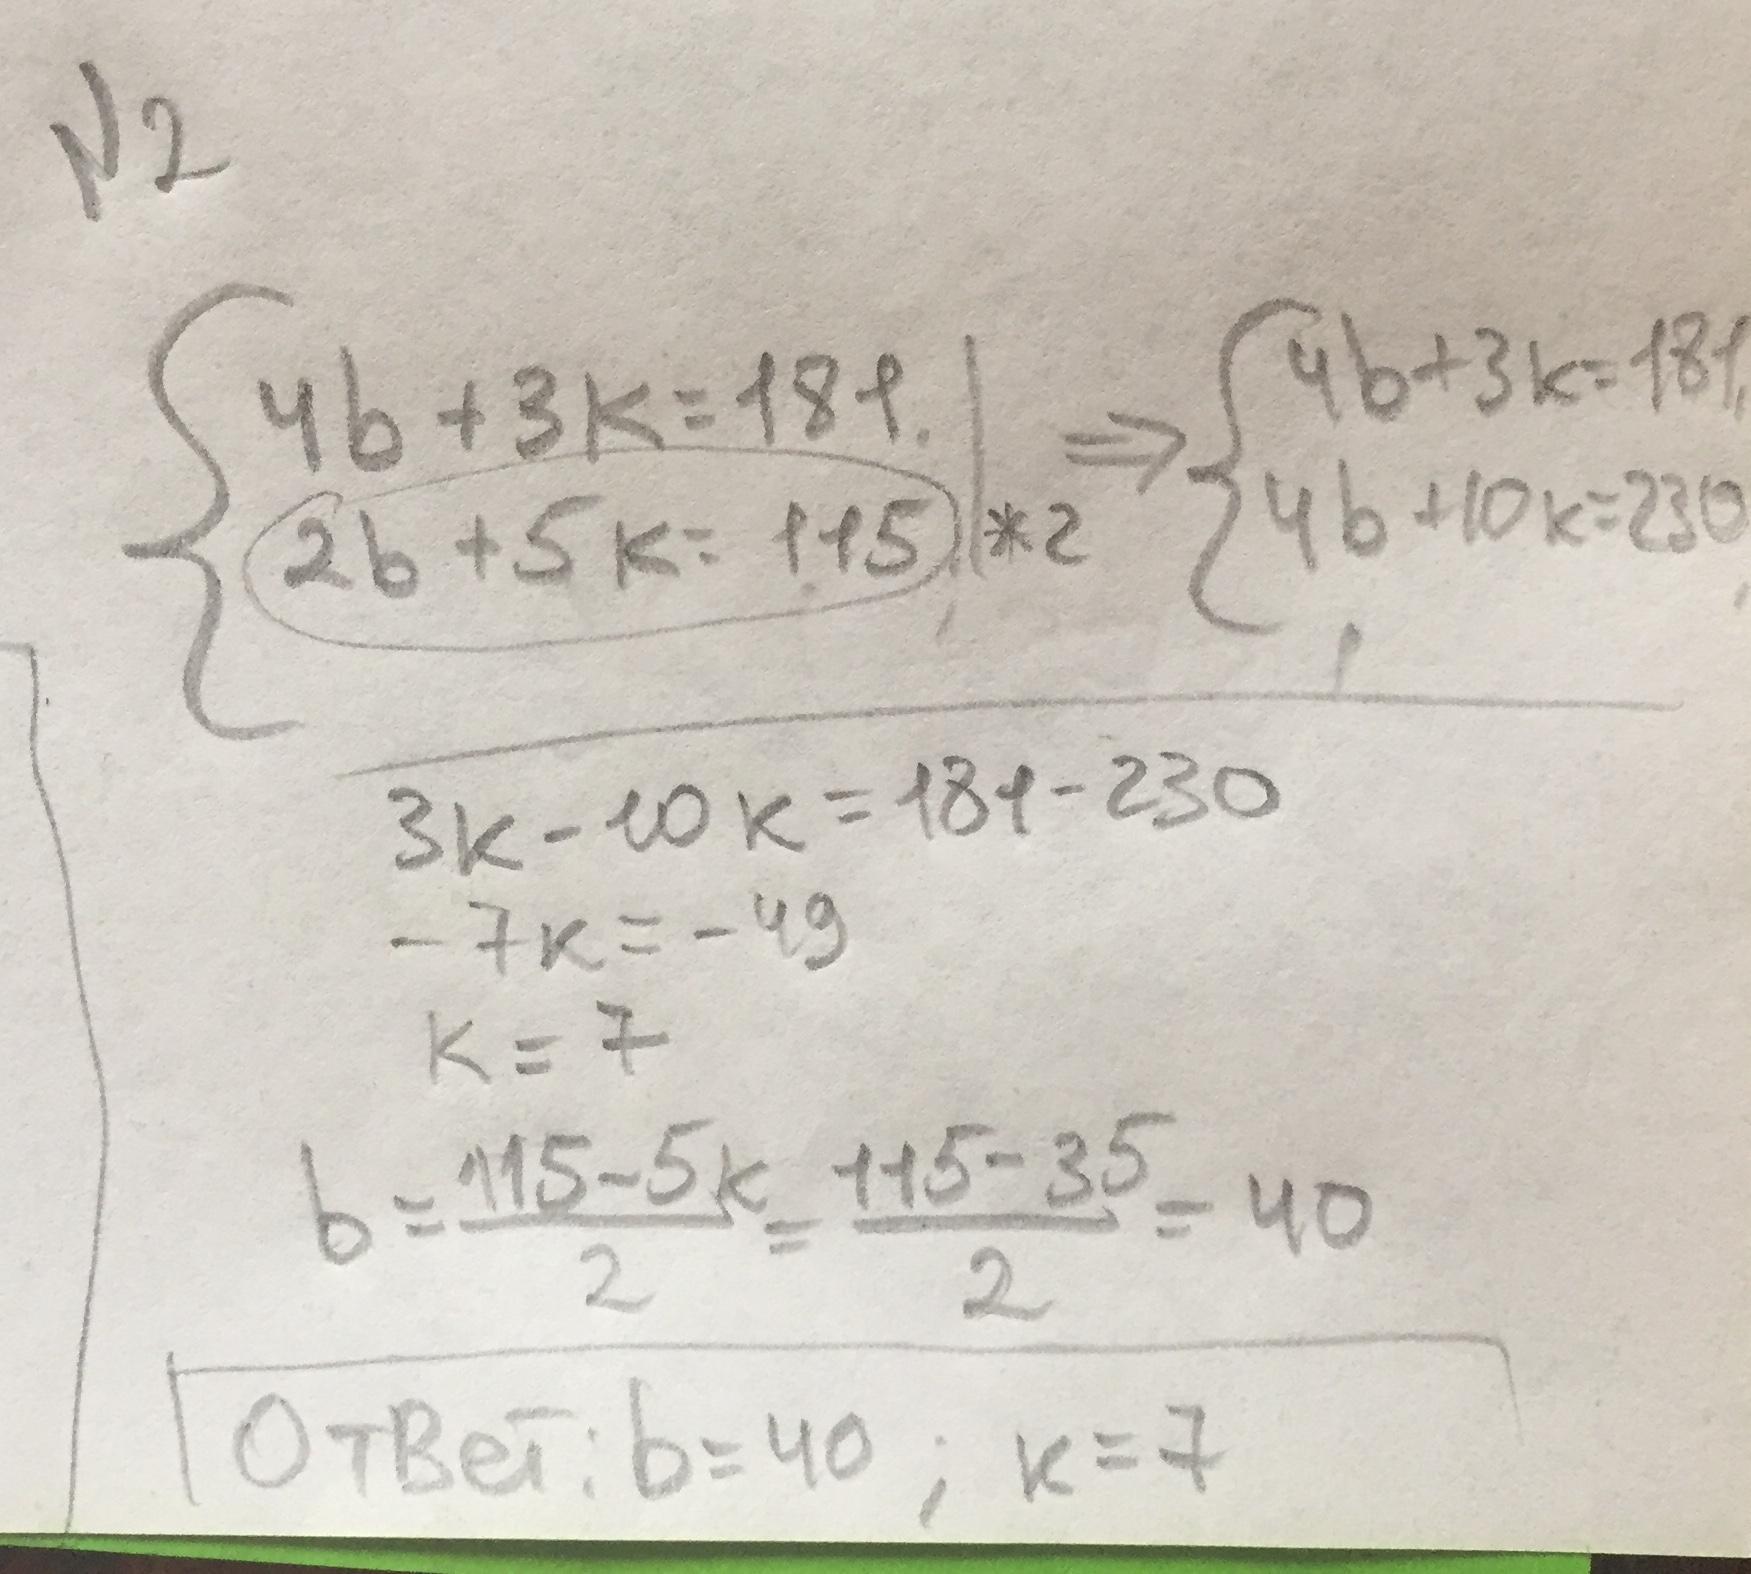 N2
4b+3k=181.
2b+5k=115 | *2
⇒ 4b+3k=181,
4b+10k=230,
3k-10k=181-230
-7k=-49
k=7
b=115-5k/2=115-35/2=40
Ответ: b=40; k=7